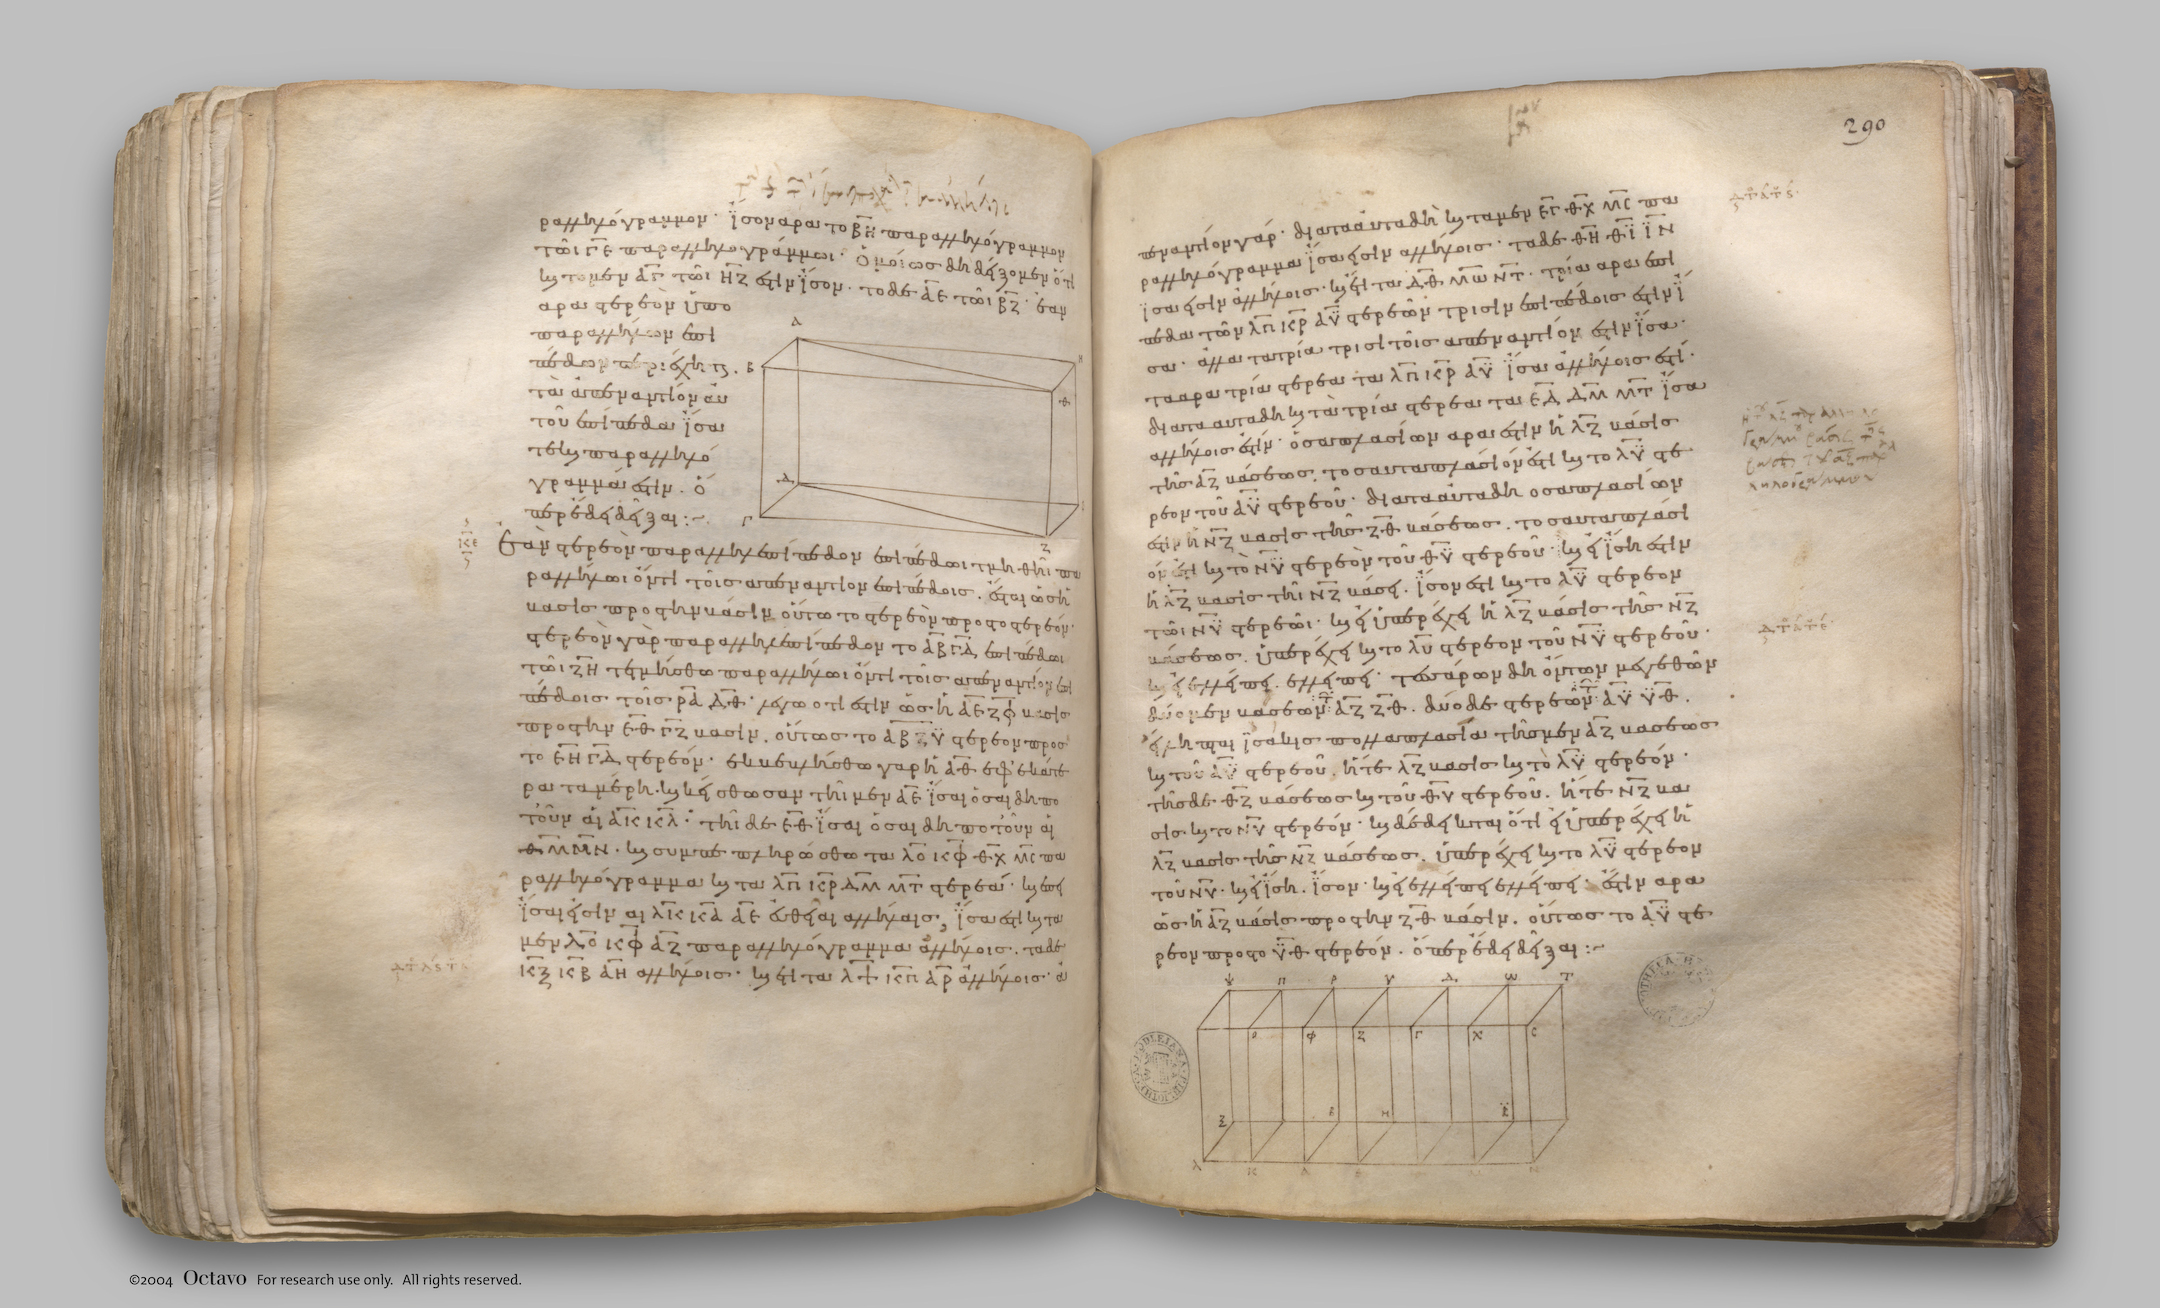 ραλληλόγραμμον· ἴσον ἄρα τὸ ΒΗ παραλληλόγραμμον
τῶι ΓΕ παραλληλογράμμωι· ὁμοίως δὴ δείξομεν ὅτι
καὶ τὸ μὲν ΑΓ τῶι ΗΖ ἐστὶν ἴσον· τὸ δὲ ΑΕ τῶι ΒΖ· ἐὰν
ἄρα στερεὸν ὑπὸ
παραλλήλων ἐπι
πέδων περιέχηται.
τὰ ἀπεναντίον αὐ
τοῦ ἐπίπεδα ἴσα
τε καὶ παραλληλό
γραμμά ἐστιν· ὅ
περ ἔδει δεῖξαι:~
Α Β Η Θ Δ Γ Ζ
ΚΕ Ἐὰν στερεὸν παραλληλεπίπεδον ἐπιπέδωι τμηθῆι πα
ραλλήλωι ὄντι τοῖς ἀπεναντίον ἐπιπέδοις. ἔσται ὡς ἡ
βάσις πρὸς τὴν βάσιν οὕτω τὸ στερεὸν πρὸς τὸ στερεόν·
στερεὸν γὰρ παραλληλεπίπεδον τὸ ΑΒΓΔ ἐπιπέδωι
τῶι ΖΗ τετμήσθω παραλλήλωι ὄντι τοῖς ἀπεναντίον ἐπι
πέδοις τοῖς ΡΑ ΔΘ· λέγω ὅτι ἐστὶν ὡς ἡ ΑΕΖΦ βάσις
πρὸς τὴν ΕΘΓΖ βάσιν. οὕτως τὸ ΑΒΖΫ στερεὸν πρὸς
τὸ ΕΗΓΔ στερεόν· ἐκβεβλήσθω γὰρ ἡ ΑΘ ἐφ' ἑκάτε
ρα τὰ μέρη· καὶ κείσθωσαν τῆι μὲν ΑΕ ἴσαι ὅσαι δηπο
τοῦν αἱ ΑΚ ΚΛ· τῆι δὲ ΕΘ ἴσαι ὅσαι δηποτοῦν αἱ
ΘΜ ΜΝ· καὶ συμπεπληρώσθω τὰ ΛΟ ΚΦ ΘΧ ΜC πα
ραλληλόγραμμα καὶ τὰ ΛΠ ΚΡ ΔΜ ΜΤ στερεά· καὶ ἐπεὶ
ἴσαι εἰσὶν αἱ ΛΚ ΚΑ ΑΕ εὐθεῖαι ἀλλήλαις, ἴσα ἐστὶ καὶ τὰ
μὲν ΛΟ ΚΦ ΑΖ παραλληλόγραμμα ἀλλήλοις. τὰ δὲ
ΚΞ ΚΒ ΑΗ ἀλλήλοις· καὶ ἔτι τὰ ΛΨ ΚΠ ΑΡ ἀλλήλοις· ἀ
290
πεναντίον γάρ· διὰ τὰ αὐτὰ δὴ καὶ τὰ μὲν ΕΓ ΘΧ ΜC πα
ραλληλόγραμμα ἴσα εἰσὶν ἀλλήλοις· τὰ δὲ ΘΗ ΘΪ ΪΝ
ἴσα εἰσὶν ἀλλήλοις· καὶ ἔτι τὰ ΔΘ ΜΩ ΝΤ· τρία ἄρα ἐπί
πεδα τῶν ΛΠ ΚΡ ΑΫ στερεῶν τρισὶν ἐπιπέδοις ἐστὶν ἴ
σα· ἀλλὰ τὰ τρία τρισὶ τοῖς ἀπεναντίον ἐστὶν ἴσα·
τὰ ἄρα τρία στερεὰ τὰ ΛΠ ΚΡ ΑΫ ἴσα ἀλλήλοις ἐστί·
διὰ τὰ αὐτὰ δὴ καὶ τὰ τρία στερεὰ τὰ ΕΔ ΔΜ ΜΤ ἴσα
ἀλλήλοις ἐστίν· ὁσαπλασίων ἄρα ἐστὶν ἡ ΛΖ βάσις
τῆς ΑΖ βάσεως. τοσαυταπλάσιόν ἐστι καὶ τὸ ΛΫ στε
ρεὸν τοῦ ΑΫ στερεοῦ· διὰ τὰ αὐτὰ δὴ ὁσαπλασίων
ἐστὶν ἡ ΝΖ βάσις τῆς ΖΘ βάσεως. τοσαυταπλάσι
όν ἐστι καὶ τὸ ΝΫ στερεὸν τοῦ ΘΫ στερεοῦ· καὶ εἰ ἴση ἐστὶν
ἡ ΛΖ βάσις τῆι ΝΖ βάσει. ἴσον ἐστὶ καὶ τὸ ΛΫ στερεὸν
τῶι ΝΫ στερεῶι· καὶ εἰ ὑπερέχει ἡ ΛΖ βάσις τῆς ΝΖ
βάσεως. ὑπερέχει καὶ τὸ ΛΫ στερεὸν τοῦ ΝΫ στερεοῦ·
καὶ εἰ ἐλλείπει. ἐλλείπει· τεσσάρων δὴ ὄντων μεγεθῶν
δύο μὲν βάσεων τῶν ΑΖ ΖΘ. δύο δὲ στερεῶν τῶν ΑΫ ΫΘ.
εἴληπται ἰσάκις πολλαπλάσια τῆς μὲν ΑΖ βάσεως
καὶ τοῦ ΑΫ στερεοῦ. ἥ τε ΛΖ βάσις καὶ τὸ ΛΫ στερεόν·
τῆς δὲ ΘΖ βάσεως καὶ τοῦ ΘΫ στερεοῦ. ἥ τε ΝΖ βά
σις καὶ τὸ ΝΫ στερεόν· καὶ δέδεικται ὅτι εἰ ὑπερέχει ἡ
ΛΖ βάσις τῆς ΝΖ βάσεως. ὑπερέχει καὶ τὸ ΛΫ στερεὸν
τοῦ ΝΫ· καὶ εἰ ἴση. ἴσον· καὶ εἰ ἐλλείπει ἐλλείπει· ἔστιν ἄρα
ὡς ἡ ΑΖ βάσις πρὸς τὴν ΖΘ βάσιν. οὕτως τὸ ΑΫ στε
ρεὸν πρὸς τὸ ΫΘ στερεόν. ὅπερ ἔδει δεῖξαι:~
Ψ Π Ρ Υ Δ Ω Τ
Ο Φ Ζ Γ Χ C
Ξ Β Η Ϊ
Λ Κ Α Ε Ν
©2004 Octavo For research use only. All rights reserved.